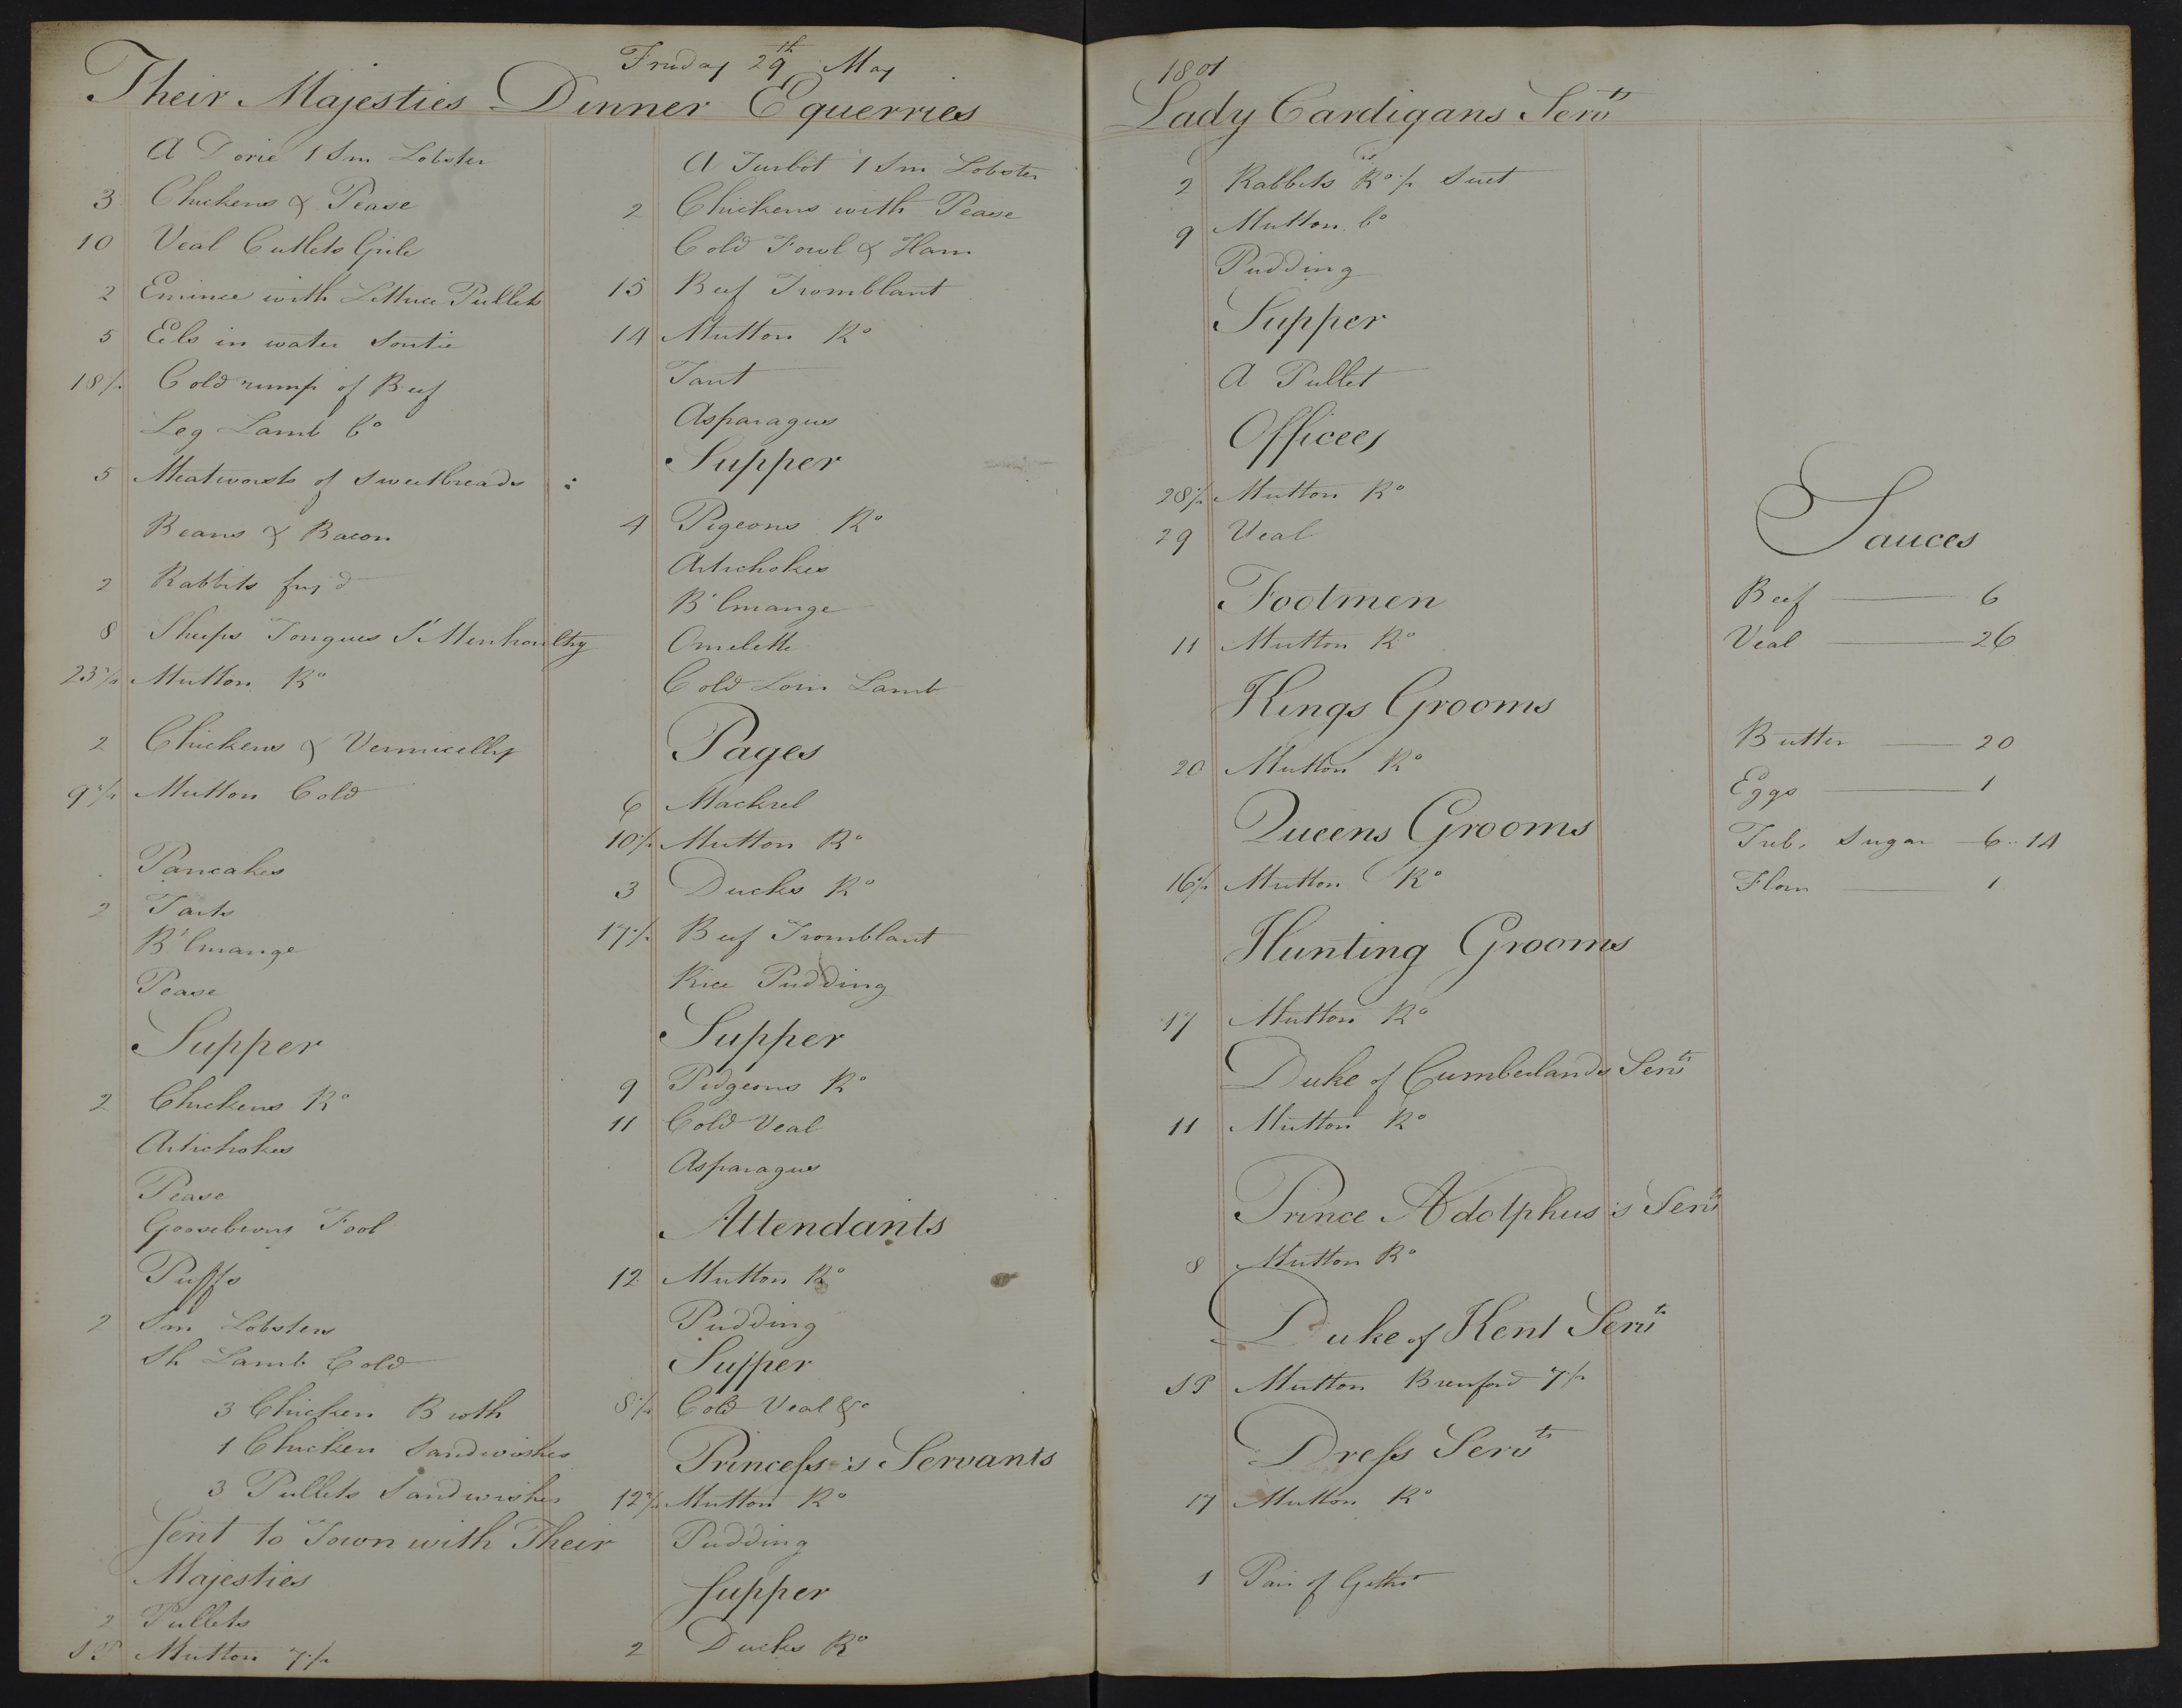 Friday 29th May
Their Majesties Dinner
A Dorie 1 Sm Lobster
3 Chickens & Pease
10 Veal Cutlets Grile
2 Emince with Lettuce Pullets
5 Eels in water Soutie
18½ Cold rump of Beef
Leg Lamb Co
5 Meatworst of Sweetbreads
Beans & Bacon
2 Rabbits fry'd
8 Sheeps Tongues St
23½ Mutton Ro
2 Chickens & Vermicelly
9½ Mutton Cold
Pancakes
2 Tarts
B'lmange
Pease
Supper
2 Chickens Ro
Artichokes
Pease
Gooseberry Fool
Puffs
2 Sm Lobsters
Sh Lamb Cold
3 Chicken Broth
1 Chicken Sandwishes
3 Pullets Sandwishes
Sent to Town with Their
Majesties
2 Pullets
SP Mutton 7½
Equerries
A Turbot 1 Sm Lobster
2 Chickens with Pease
Cold Fowl & Ham
15 Beef Tromblant
14 Mutton Ro
Tart
Asparagus
Supper
4 Pigeons Ro
Artichokes
B'lmange
Omelette
Cold Loin Lamb
Pages
6 Mackrel
10½ Mutton Ro
3 Ducks Ro
17½ Beef Tromblant
Rice Pudding
Supper
9 Pidgeons Ro
11 Cold Veal
Asparagus
Attendants
12 Mutton Ro
Pudding
Supper
8½ Cold Veal &c
Princess's Servants
12½ Mutton Ro
Pudding
Supper
2 Ducks Ro
1801
Lady Cardigans Servts
2 Rabbits Ro ½ Suet
9 Mutton Co
Pudding
Supper
A Pullet
Offices
28½ Mutton Ro
29 Veal
Footmen
11 Mutton Ro
Kings Grooms
20 Mutton Ro
Queens Grooms
16½ Mutton Ro
Hunting Grooms
17 Mutton Ro
Duke of Cumberlands Servts
11 Mutton Ro
Prince Adolphus's Servts
8 Mutton Ro
Duke of Kent Servts
SP Mutton 7½
Dress Servts
17 Mutton Ro
1 Pair of
Sauces
Beef 6
Veal 26
Butter 20
Eggs 1
Sugar 6..14
Flour 1